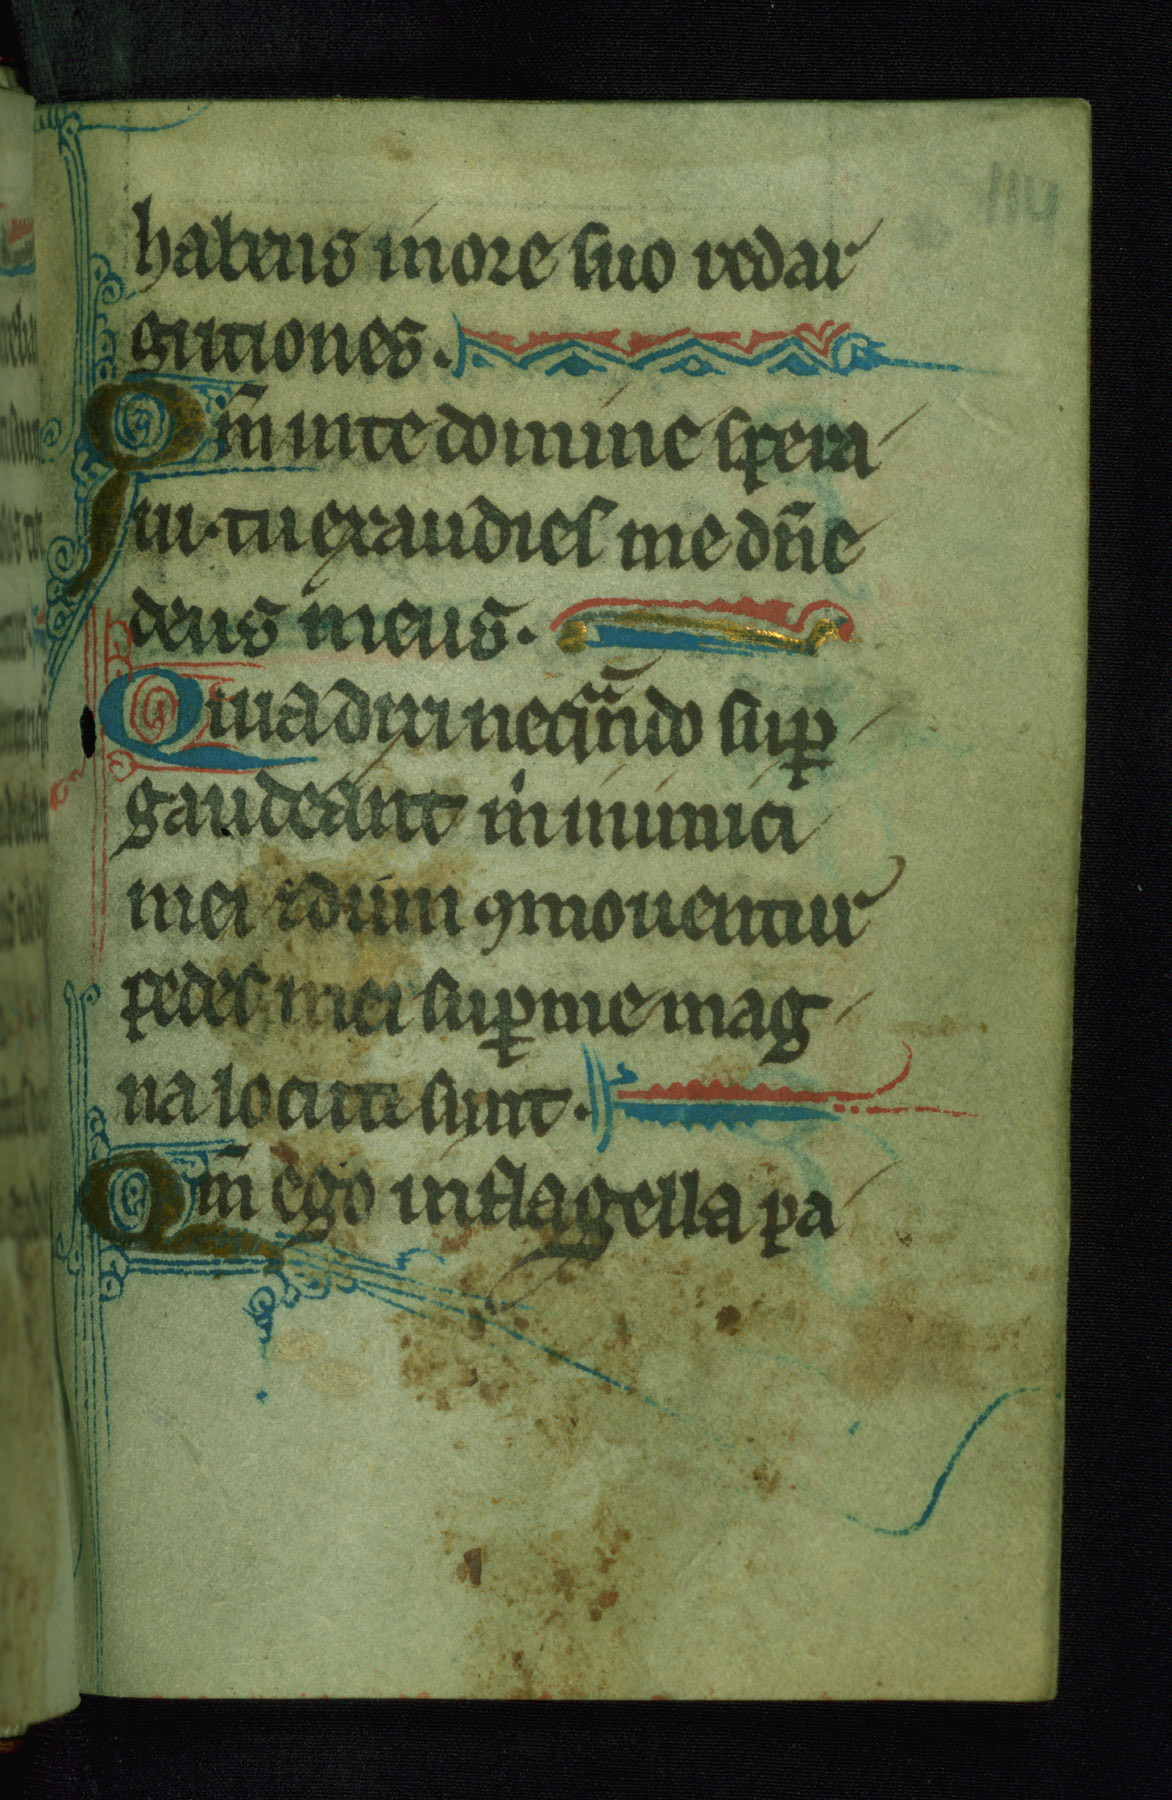 114
habens in ore suo redar
gutiones.
Qm̄ in te domine spera
ui. tu exaudies me dn̄e
deus meus.
Quia dixi neqn̄do sup̱
gaudeant m̍ inimici
mei ⁊ dum ꝯmouentur
pedes mei sup̱ me mag
na locuti sunt.
Qm̄ ego in flagella pa